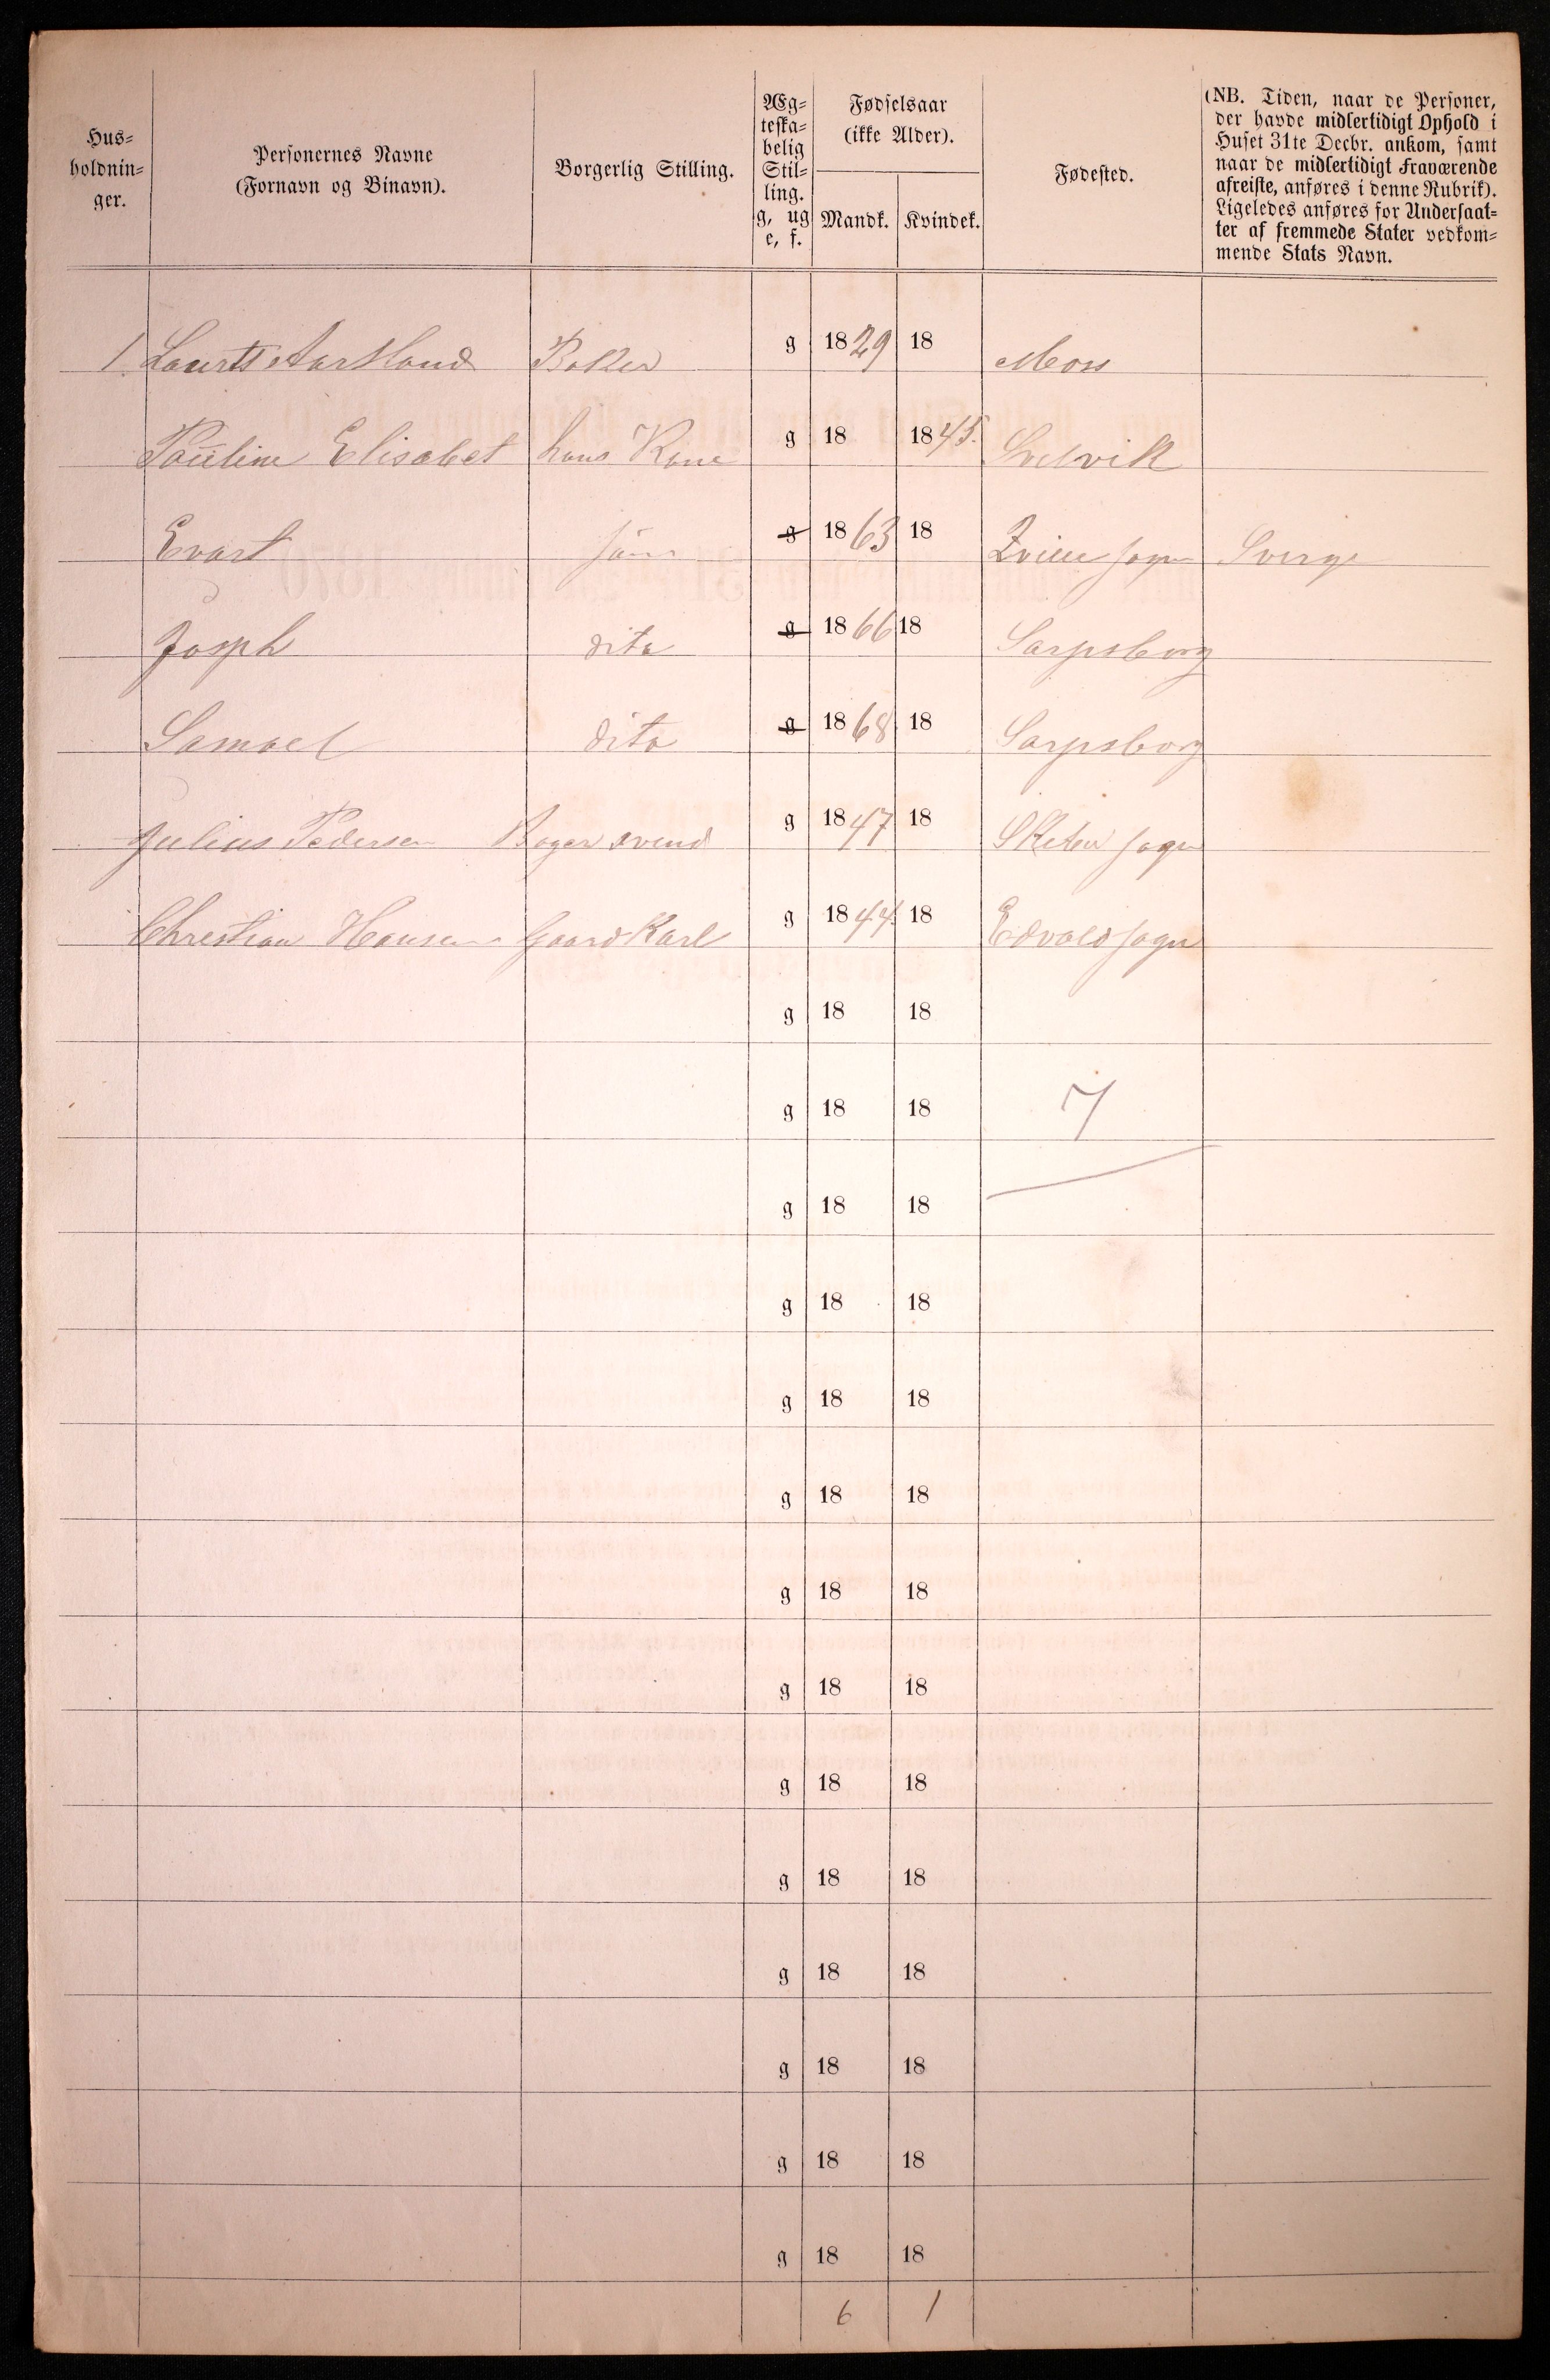 Hus-
holdnin-
ger.
Personernes Navne
(Fornavn og Binavn).
Borgerlig Stilling.
Æg-
teska-
belig
Stil-
ling.
g, ug
e, f.
Fødselsaar
(ikke Alder).
Mandk. Kvindek.
Fødested.
(NB. Tiden, naar de Personer,
der havde midlertidigt Ophold i
Huset 31te Decbr. ankom, samt
naar de midlertidigt Fraværende
afreiste, anføres i denne Rubrik).
Ligeledes anføres for Undersaat-
ter af fremmede Stater vedkom-
mende Stats Navn.
1 Laurts Baker g 1829 18 Moss
Pauline Elisabet hans Kone g 18 1845. Svelvik
Evart g 1863 18 sogn Sverge
Joseph dito g 1866 18 Sarpsborg
Samoel dito g 1868 18 Sarpsborg
Julius Pedersen Bager svend g 1847 18 sogn
Christian Hansen Gaard Karl g 1844. 18 sogn
g 18 18
g 18 18 7
g 18 18
g 18 18
g 18 18
g 18 18
g 18 18
g 18 18
g 18 18
g 18 18
g 18 18
g 18 18
g 18 18
g 18 18
6 1